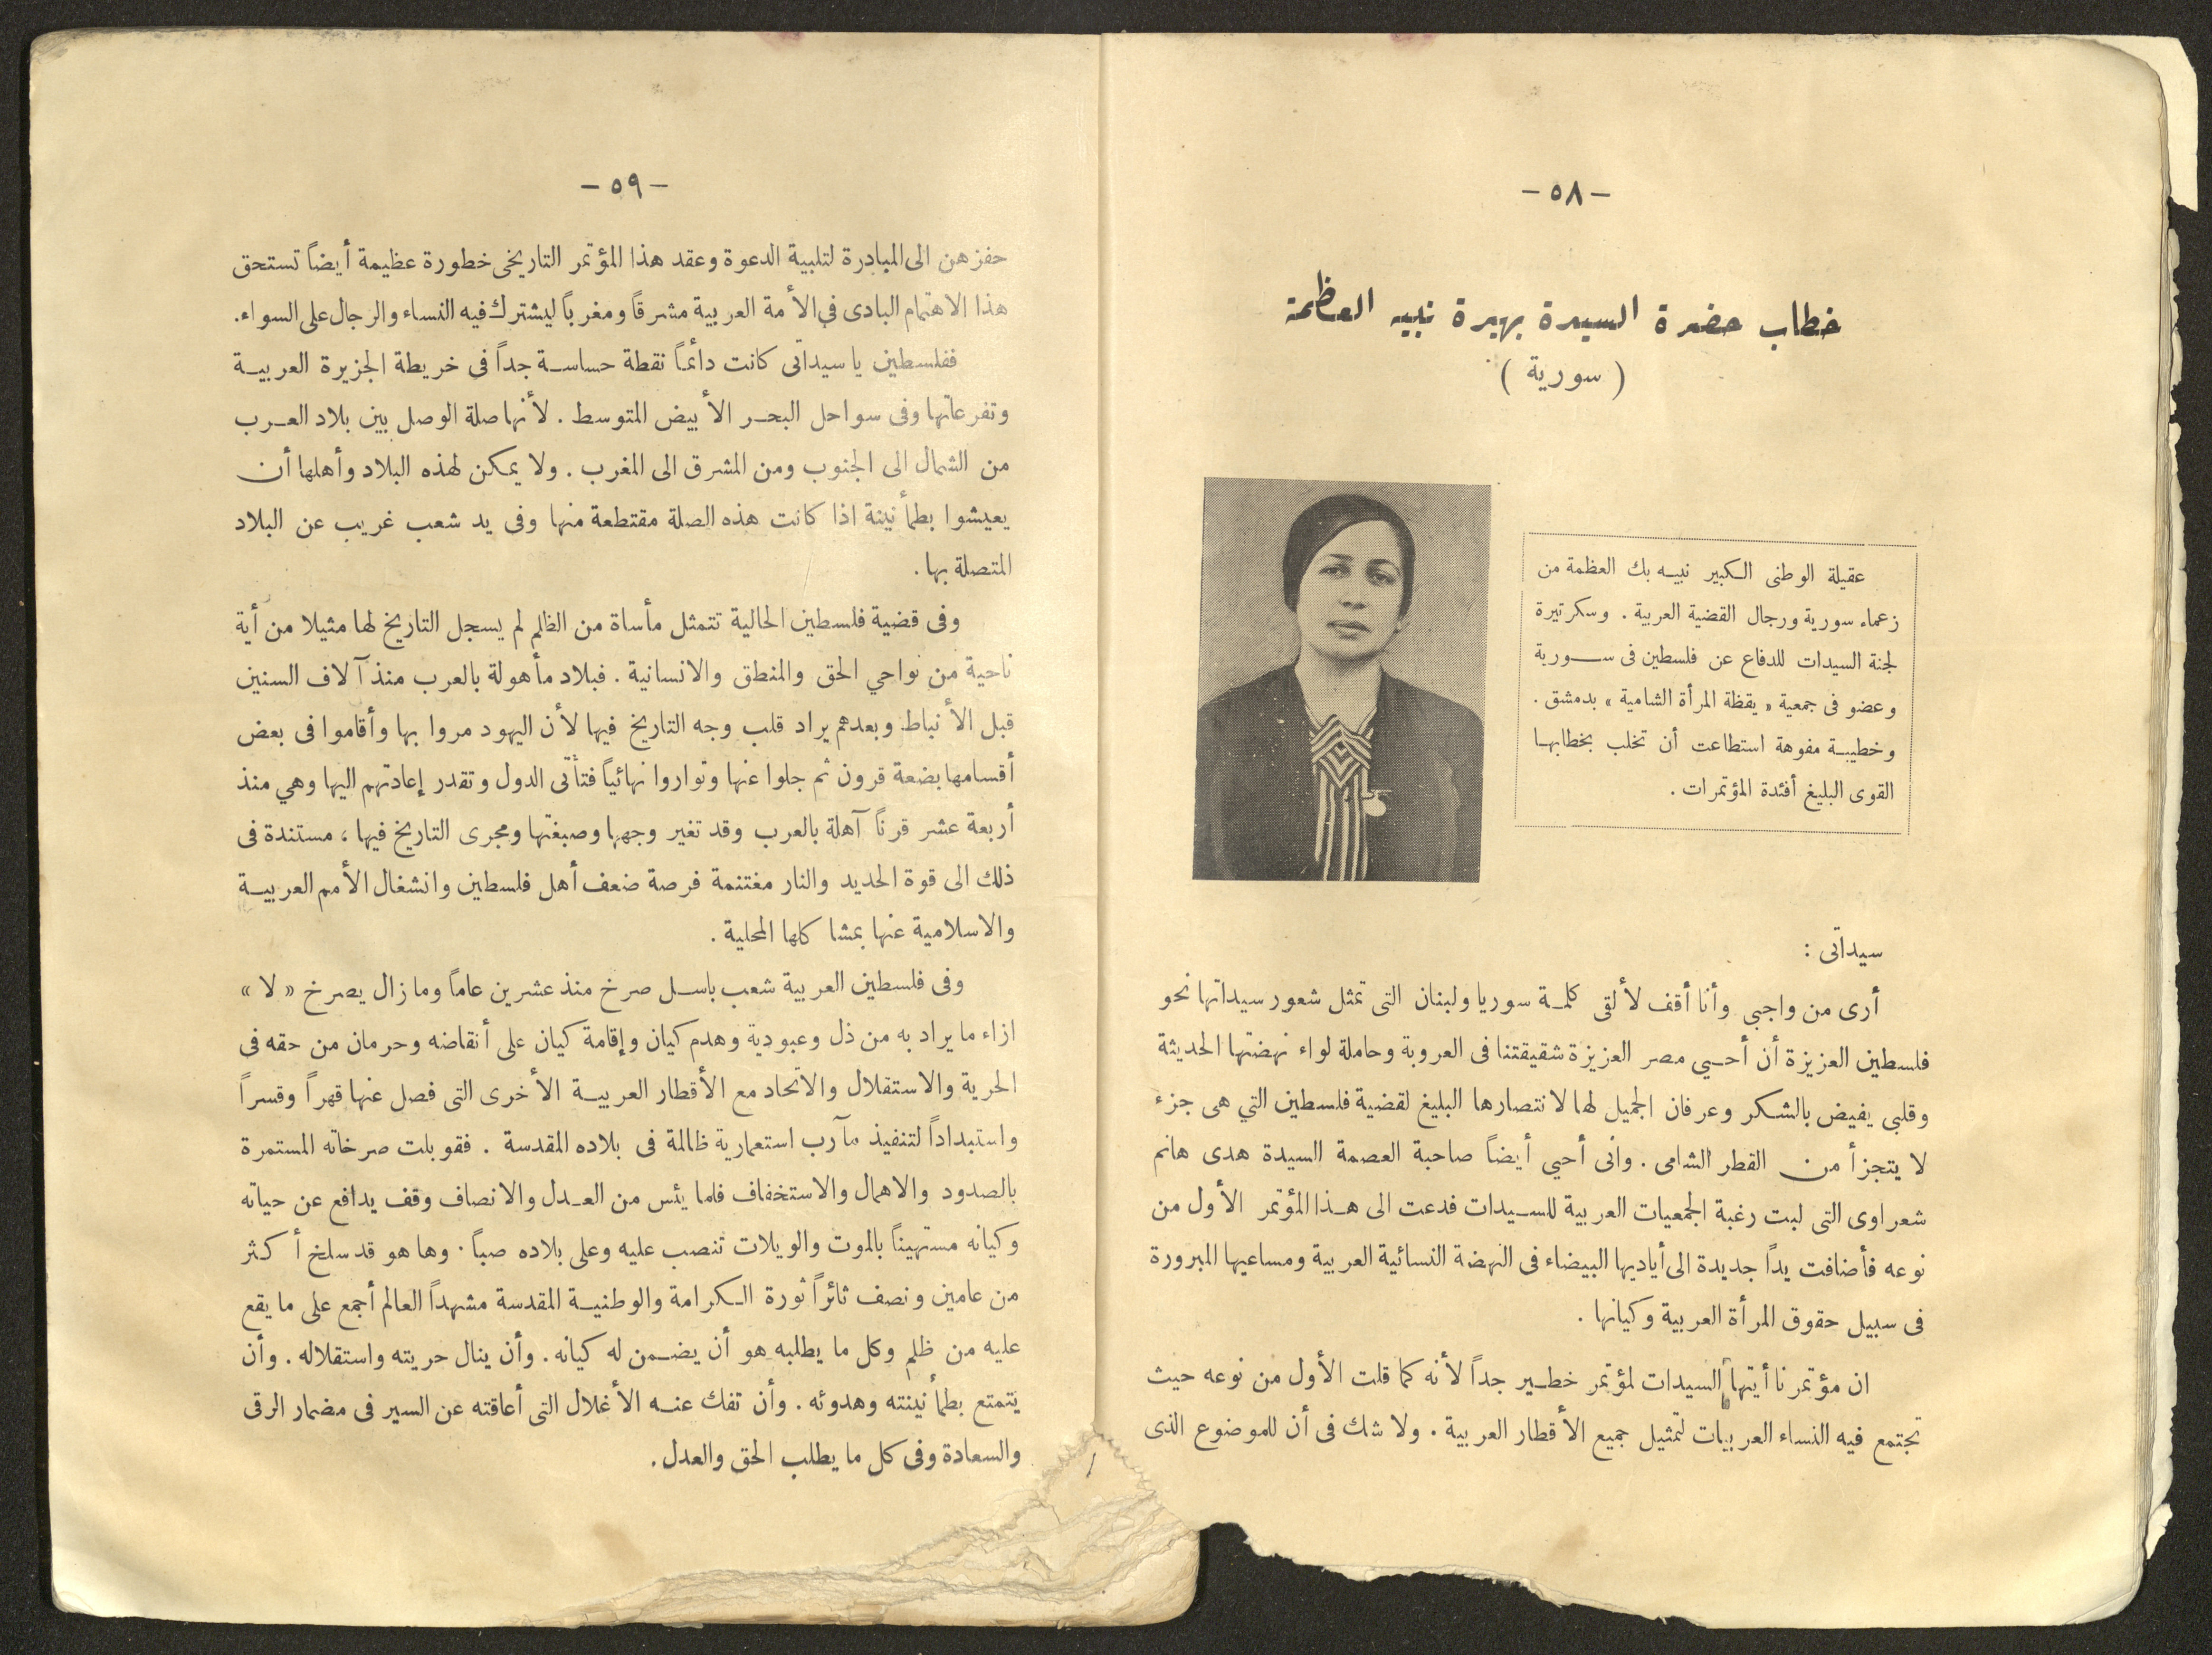 — ٥٨ —
خطاب حضرة السيدة بهيرة نبيه العظمة
( سورية )
عقيلة الوطنى الكبير نبيه بك العظمة من
زعماء سورية ورجال القضية العربية . وسكرتيرة
لجنة السيدات للدفاع عن فلسطين فى سورية
وعضو فى جمعية « يقظة المرأة الشامية » بدمشق .
وخطيبة مفوهة استطاعت أن تخلب بخطابها
القوى البليغ أفئدة المؤتمرات .
سيداتى :
أرى من واجبى وأنا أقف لألقى كلمة سوريا ولبنان التى تمثل شعور سيداتها نحو
فلسطين العزيزة أن أحيي مصر العزيزة شقيقتنا فى العروبة وحاملة لواء نهضتها الحديثة
وقلبى يفيض بالشكر وعرفان الجميل لها لانتصارها البليغ لقضية فلسطين التي هى جزء
لا يتجزأ من القطر الشامى . وانى أحيي أيضاً صاحبة العصمة السيدة هدى هانم
شعراوى التى لبت رغبة الجمعيات العربية للسيدات فدعت الى هذا المؤتمر الأول من
نوعه فأضافت يداً جديدة الى أياديها البيضاء فى النهضة النسائية العربية ومساعيها المبرورة
فى سبيل حقوق المرأة العربية وكيانها .
ان مؤتمرنا أيتها السيدات لمؤتمر خطير جداً لأنه كما قلت الأول من نوعه حيث
تجتمع فيه النساء العربيات لتمثيل جميع الأقطار العربية . ولا شك فى أن للموضوع الذى
— ٥٩ —
حفزهن الى المبادرة لتلبية الدعوة وعقد هذا المؤتمر التاريخى خطورة عظيمة أيضاً تستحق
هذا الاهتمام البادى في الأمة العربية مشرقاً ومغرباً ليشترك فيه النساء والرجال على السواء.
ففلسطين يا سيداتى كانت دائماً نقطة حساسة جداً فى خريطة الجزيرة العربية
وتفرعاتها وفى سواحل البحر الأبيض المتوسط . لأنها صلة الوصل بين بلاد العرب
من الشمال الى الجنوب ومن المشرق الى المغرب . ولا يمكن لهذه البلاد وأهلها أن
يعيشوا بطمأنينة اذا كانت هذه الصلة مقتطعة منها وفى يد شعب غريب عن البلاد
المتصلة بها .
وفى قضية فلسطين الحالية تتمثل مأساة من الظلم لم يسجل التاريخ لها مثيلا من أية
ناحية من نواحي الحق والمنطق والانسانية . فبلاد مأهولة بالعرب منذ آلاف السنين
قبل الأنباط وبعدهم يراد قلب وجه التاريخ فيها لأن اليهود مروا بها وأقاموا فى بعض
أقسامها بضعة قرون ثم جلوا عنها وتواروا نهائياً فتأتى الدول وتقدر إعادتهم اليها وهي منذ
أربعة عشر قرناً آهلة بالعرب وقد تغير وجهها وصبغتها ومجرى التاريخ فيها ، مستندة فى
ذلك الى قوة الحديد والنار مغتنمة فرصة ضعف أهل فلسطين وانشغال الأمم العربية
والاسلامية عنها بمشاكلها المحلية .
وفى فلسطين العربية شعب باسل صرخ منذ عشرين عاماً وما زال يصرخ « لا »
ازاء ما يراد به من ذل وعبودية وهدم كيان وإقامة كيان على أنقاضه وحرمان من حقه فى
الحرية والاستقلال والاتحاد مع الأقطار العربية الأخرى التى فصل عنها قهراً وقسراً
واستبداداً لتنفيذ مآرب استعمارية ظالمة فى بلاده المقدسة . فقوبلت صرخاته المستمرة
بالصدود والاهمال والاستخفاف فلما يئس من العدل والانصاف وقف يدافع عن حياته
وكيانه مستهيناً بالموت والويلات تنصب عليه وعلى بلاده صباً . وها هو قد سلخ أكثر
من عامين ونصف ثائراً ثورة الكرامة والوطنية المقدسة مشهداً العالم أجمع على ما يقع
عليه من ظلم وكل ما يطلبه هو أن يضمن له كيانه . وأن ينال حريته واستقلاله . وأن
يتمتع بطمأنينته وهدوئه . وأن تفك عنه الأغلال التى أعاقته عن السير فى مضمار الرقى
والسعادة وفى كل ما يطلب الحق والعدل .